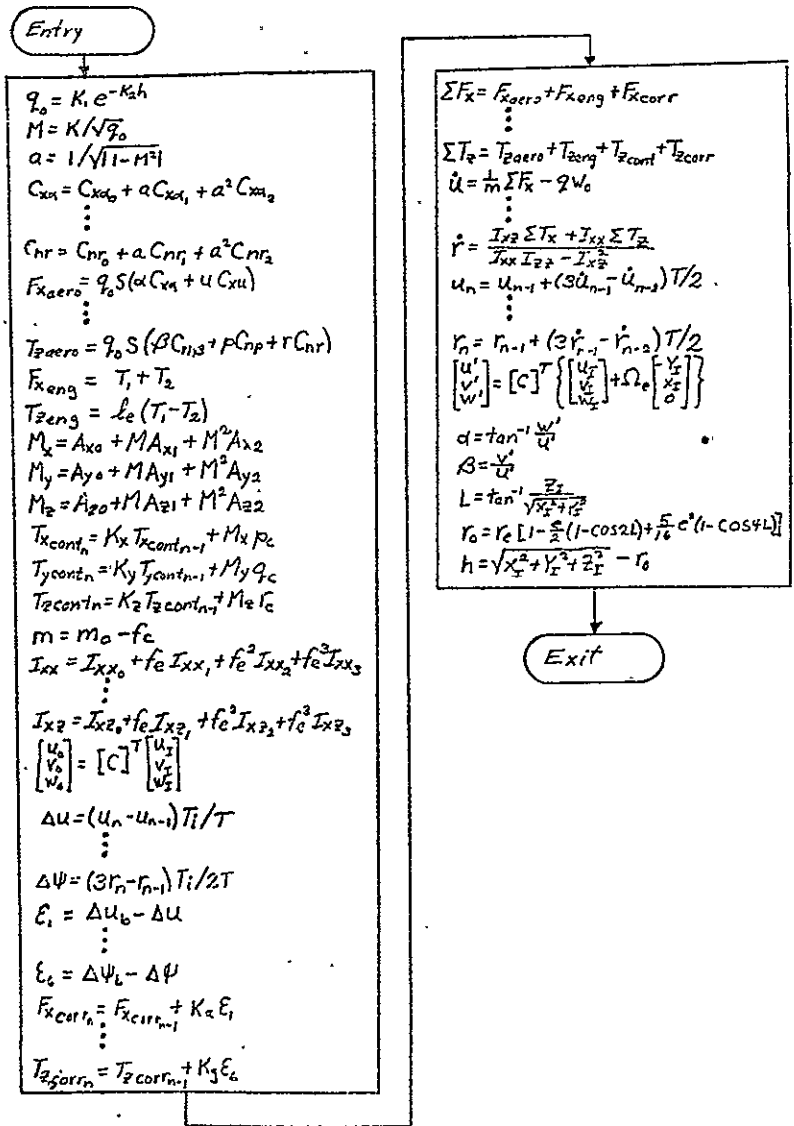 Entry
q₀ = K₁ e^{-K₂h}
M = K/√q₀
a = 1/√|1-M²|
C_{xα} = C_{xα₀} + a C_{xα₁} + a² C_{xα₂}
⋮
C_{nr} = C_{nr₀} + a C_{nr₁} + a² C_{nr₂}
F_{x aero} = q₀ S(α C_{xα} + u C_{xu})
⋮
T_{z aero} = q₀ S(β C_{nβ} + p C_{np} + r C_{nr})
F_{x eng} = T₁ + T₂
T_{z eng} = l_e (T₁ - T₂)
M_x = A_{x0} + M A_{x1} + M² A_{x2}
M_y = A_{y0} + M A_{y1} + M² A_{y2}
M_z = A_{z0} + M A_{z1} + M² A_{z2}
T_{x cont_n} = K_x T_{x cont_{n-1}} + M_x p_c
T_{y cont_n} = K_y T_{y cont_{n-1}} + M_y q_c
T_{z cont_n} = K_z T_{z cont_{n-1}} + M_z r_c
m = m₀ - f_c
I_{xx} = I_{xx₀} + f_e I_{xx₁} + f_e² I_{xx₂} + f_e³ I_{xx₃}
⋮
I_{xz} = I_{xz₀} + f_e I_{xz₁} + f_c² I_{xz₂} + f_c³ I_{xz₃}
[u₀ v₀ w₀] = [C]^T [u_I v_I w_I]
Δu = (u_n - u_{n-1}) T_i/T
⋮
Δψ = (3r_n - r_{n-1}) T_i/2T
ε₁ = Δu_b - Δu
⋮
ε₆ = Δψ_b - Δψ
F_{x corr_n} = F_{x corr_{n-1}} + K_a ε₁
⋮
T_{z corr_n} = T_{z corr_{n-1}} + K_g ε₆
ΣF_x = F_{x aero} + F_{x eng} + F_{x corr}
⋮
ΣT_z = T_{z aero} + T_{z eng} + T_{z cont} + T_{z corr}
u̇ = 1/m ΣF_x - q w₀
⋮
ṙ = (I_{xz} ΣT_x + I_{xx} ΣT_z)/(I_{xx} I_{zz} - I_{xz}²)
u_n = u_{n-1} + (3u̇_{n-1} - u̇_{n-2}) T/2
⋮
r_n = r_{n-1} + (3ṙ_{n-1} - ṙ_{n-2}) T/2
[u' v' w'] = [C]^T {[u_I v_I w_I] + Ω_e [-Y_I X_I 0]}
α = tan⁻¹ w'/u'
β = v'/u'
L = tan⁻¹ Z_I/√(X_I² + Y_I²)
r₀ = r_e [1 - e/2 (1 - cos2L) + 5/16 e² (1 - cos4L)]
h = √(X_I² + Y_I² + Z_I²) - r₀
Exit